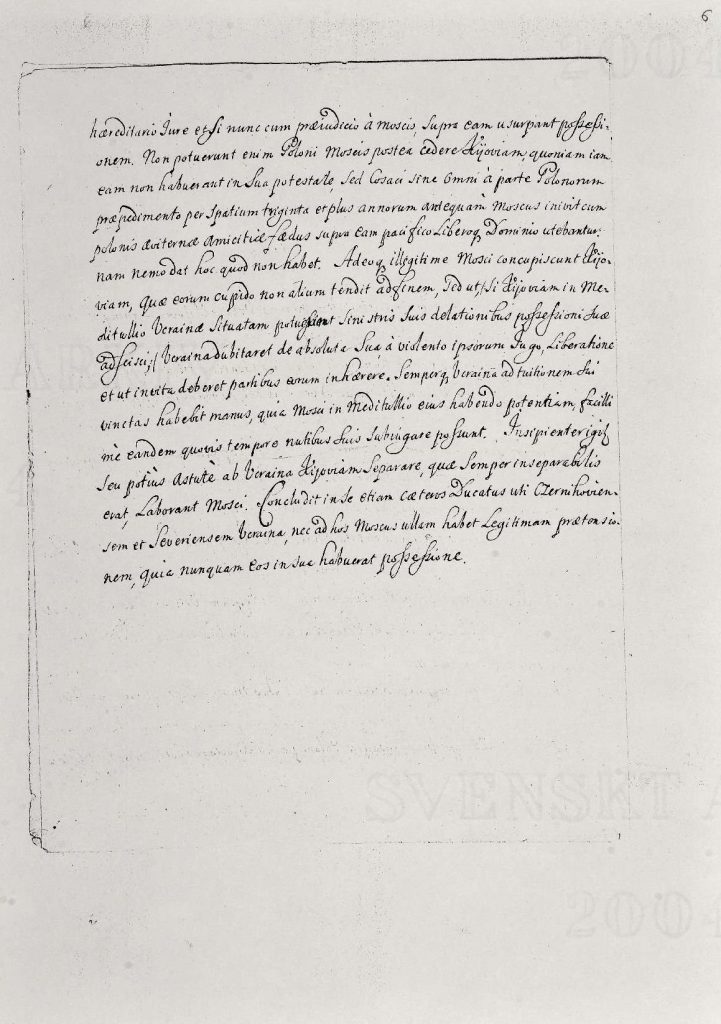 6
hæreditario Jure etsi nunc cum præiudicio à Moscis, supra eam usurpant possessi-
onem. Non potuerunt enim Poloni Moscis postea cedere Kijoviam, quoniam iam
eam non habuerant in sua potestate, sed Cosaci sine omni à parte Polonorum
præpedimento per spatium triginta et plus annorum antequàm Moscus inivit cum
polonis æviternæ amicitiæ fædus supra eam pacifico Liberoq Dominio utebantur;
nam nemo dat hoc quod non habet. Adeoq illegitime Mosci concupiscunt Kijo-
viam, quæ eorum cupido non alium tendit ad finem, sed ut si Kijoviam in Me-
ditullio Ucrainæ situatam potuissent sinistris suis delationibus possessioni suæ
adscisci, Ucraina dubitaret de absoluta sua à violento ipsorum Jugo, Liberatione
et ut invita deberet partibus eorum inhærere. Semperq Ucraina ad tuitionem sui
vinctas habebit manus, quia Mosci in Meditullio eius habendo potentiam, facilli
mè eandem quovis tempore nutibus suis subiugare possunt. Insipienter igit
seu potius Astutè ab Ucraina Kijoviam separare, quæ semper inseparabilis
erat, Laborant Mosci. Concludit in se etiam cæteros Ducatus uti Czernihovien-
sem et Severiensem Ucraina, nec ad hos Moscus ullam habet Legitimam prætensio-
nem, quia nunquam eos in sua habuerat possessione.
2004
SVENSKT A
2004